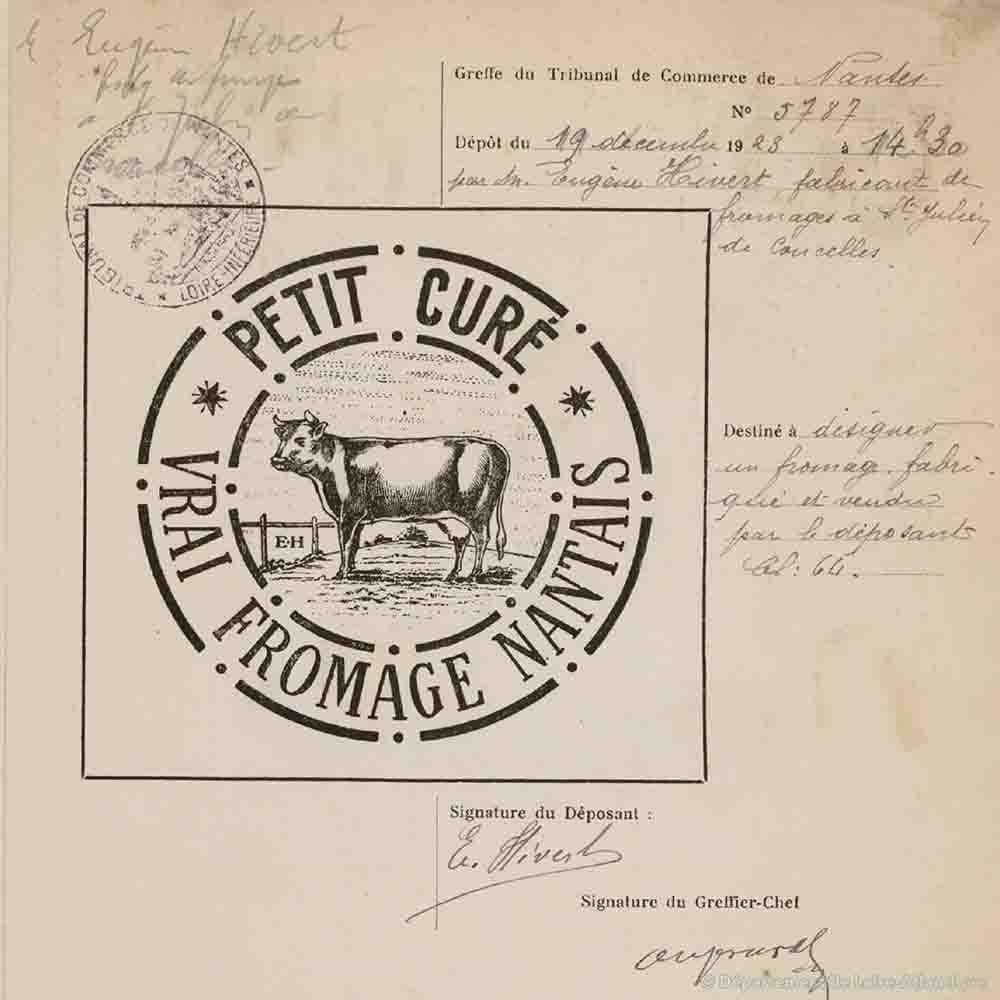 Eugène Hivert
Greffe du Tribunal de Commerce de Nantes
N° 5787
Dépôt du 19 décembre 1928 à 14h30
par M. Eugène Hivert, fabricant de
fromages à St Julien
de Concelles.
TRIBUNAL DE COMMERCE * NANTES * LOIRE-INFÉRIEURE *
PETIT CURÉ
VRAI FROMAGE NANTAIS
E·H
Destiné à désigner
un fromage fabri-
qué et vendu
par le déposant
Cl: 64.
Signature du Déposant :
E. Hivert
Signature du Greffier-Chef
© Département de Loire-Atlantique